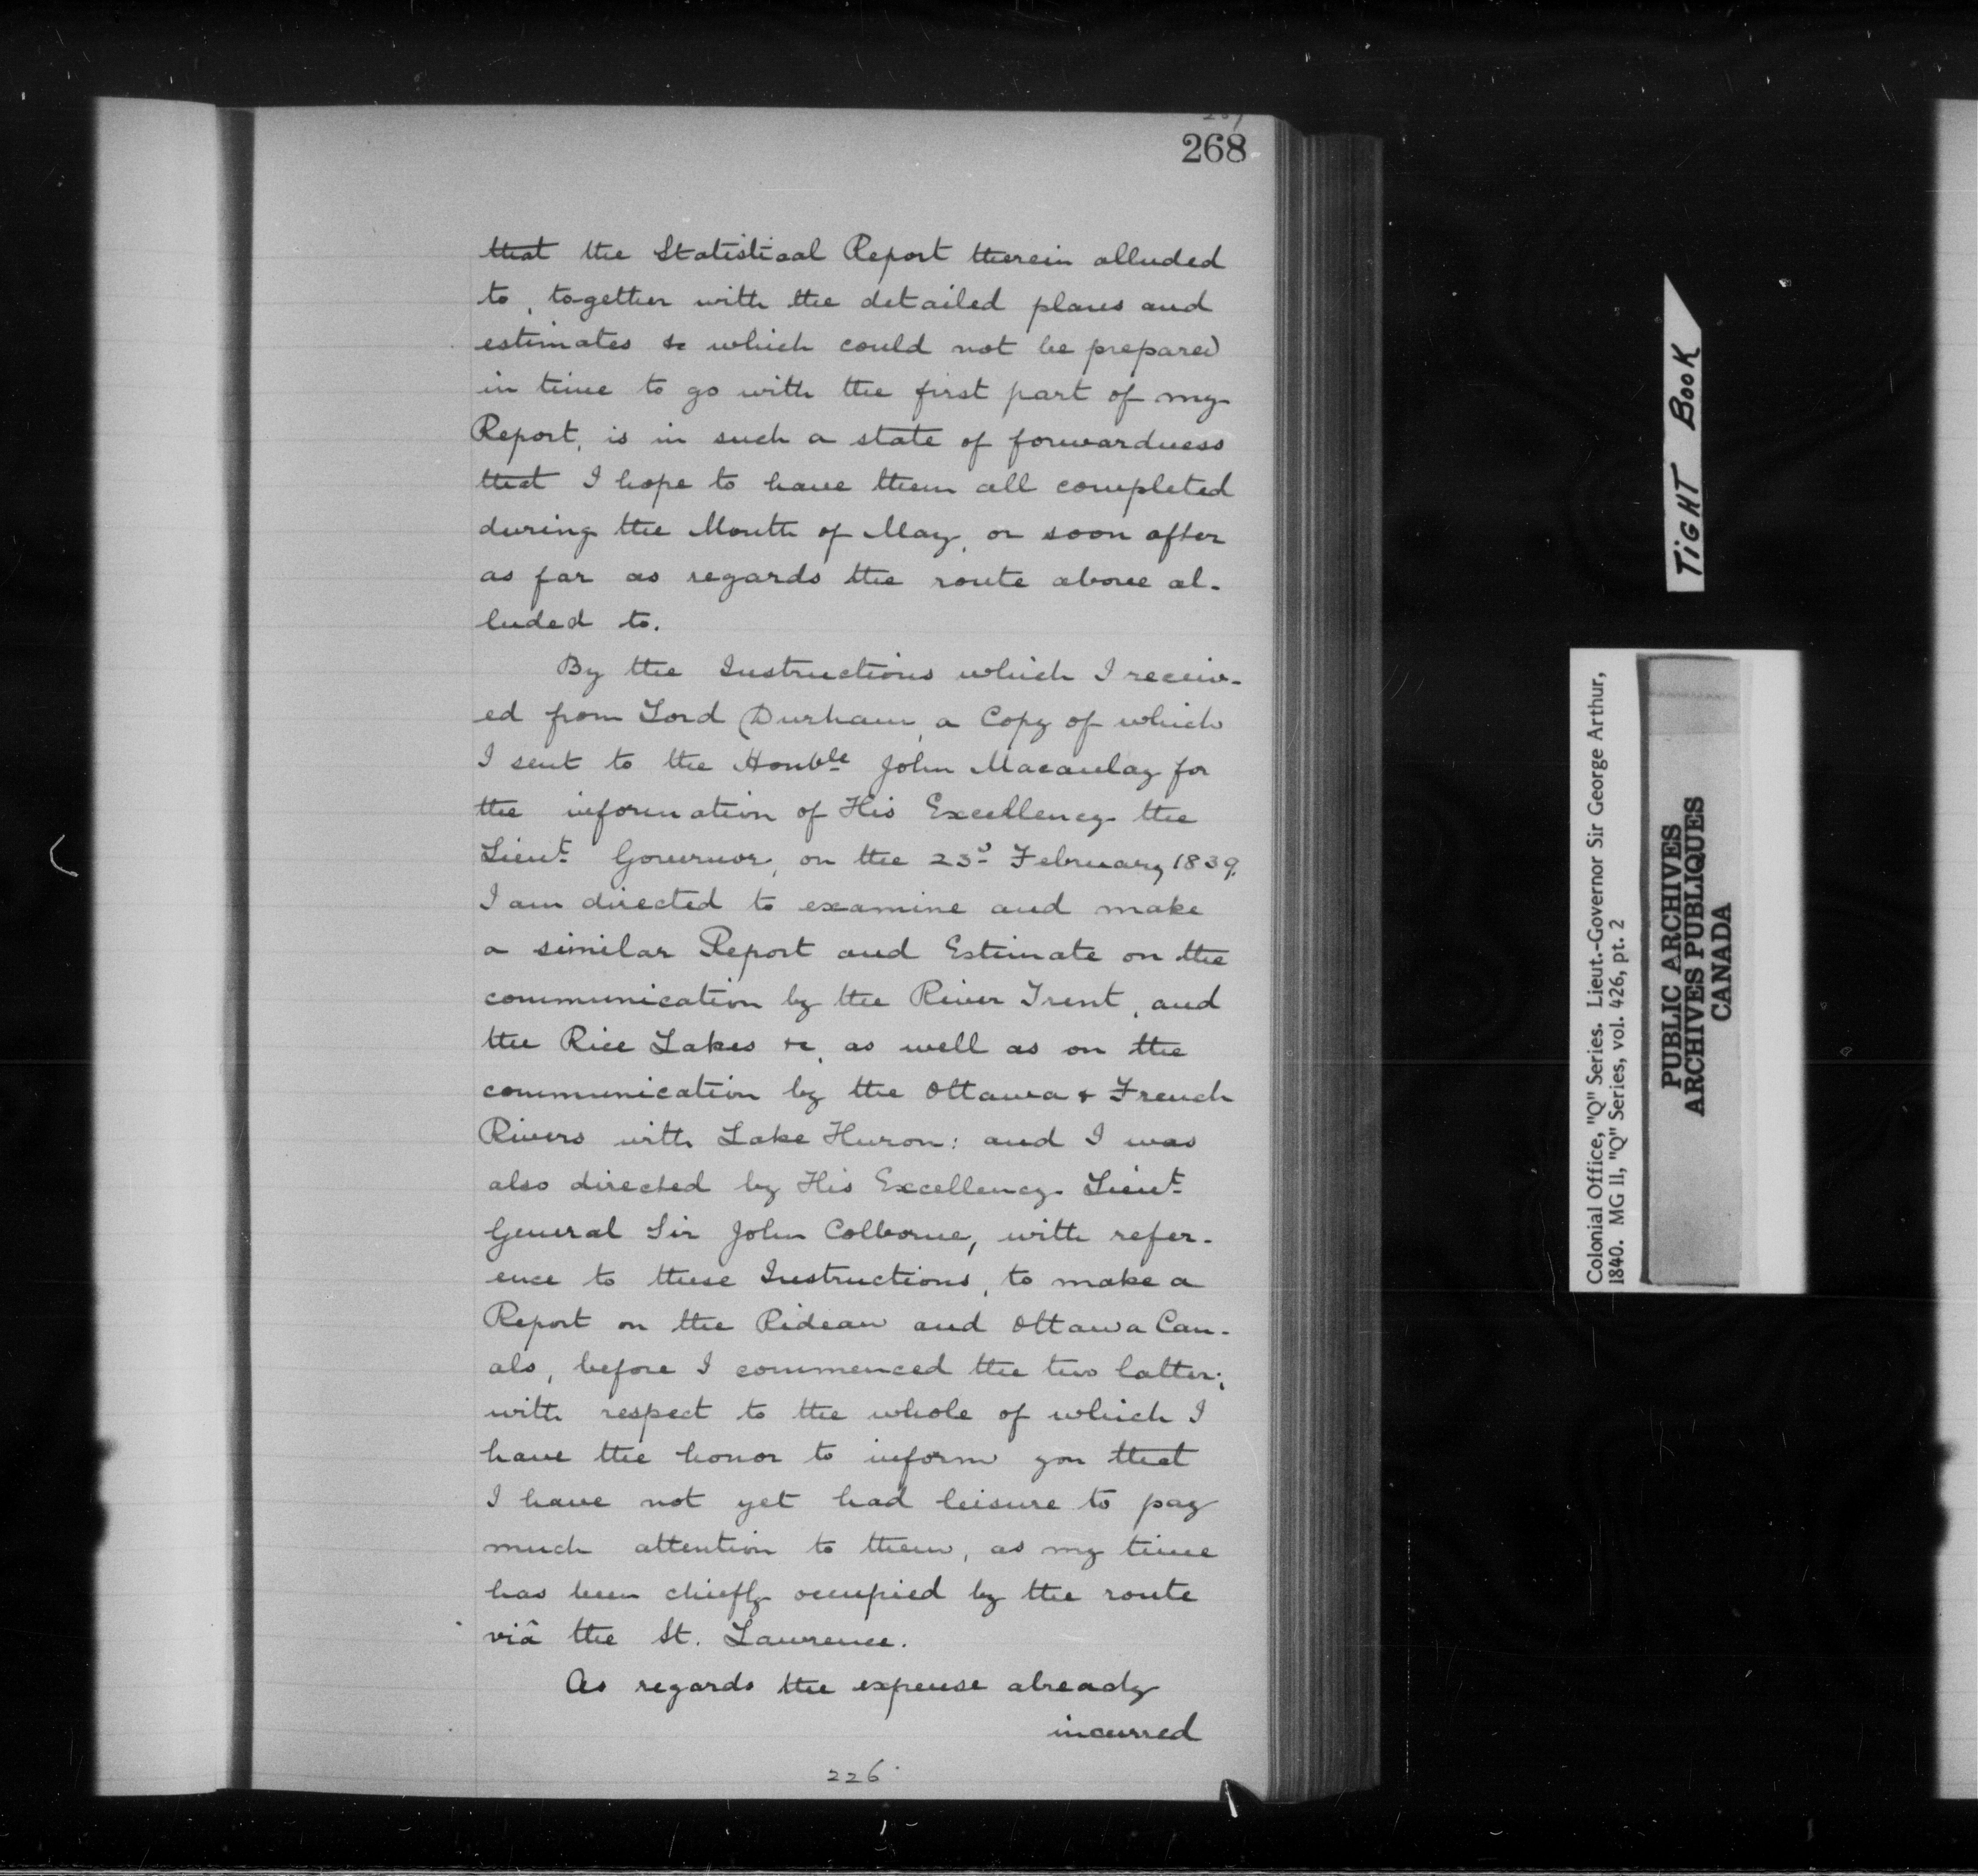 268
that the Statistical Report therein alluded
to, together with the detailed plans and
estimates &c which could not be prepared
in time to go with the first part of my
Report, is in such a state of forwardness
that I hope to have them all completed
during the Month of May, or soon after
as far as regards the route above al-
luded to.
By the Instructions which I receiv-
ed from Lord Durham, a Copy of which
I sent to the Honble John Macaulay for
the information of His Excellency the
Lieut Governor, on the 23d February 1839,
I am directed to examine and make
a similar Report and Estimate on the
communication by the River Trent, and
the Rice Lakes &c, as well as on the
communication by the Ottawa & French
Rivers with Lake Huron: and I was
also directed by His Excellency Lieut
General Sir John Colborne, with refer-
ence to these Instructions, to make a
Report on the Rideau and Ottawa Can-
als, before I commenced the two latter;
with respect to the whole of which I
have the honor to inform you that
I have not yet had leisure to pay
much attention to them, as my time
has been chiefly occupied by the route
viâ the St. Lawrence.
As regards the expense already
incurred
226
TIGHT BOOK
Colonial Office, "Q" Series. Lieut.-Governor Sir George Arthur,
1840. MG 11, "Q" Series, vol. 426, pt. 2
PUBLIC ARCHIVES
ARCHIVES PUBLIQUES
CANADA